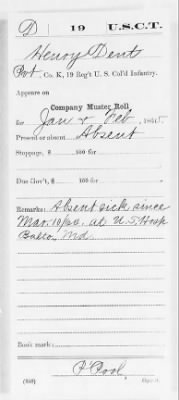 D 19 U.S.C.T.
Henry Dent
Pvt, Co. K, 19 Reg't U. S. Col'd Infantry.
Appears on
Company Muster Roll
for Jan & Feb, 1865.
Present or absent Absent
Stoppage, $ 100 for
Due Gov't, $ 100 for
Remarks: Absent sick since
Mar. 10/64. at U. S. Hosp
Balto. Md.
Book mark:
P Pool
(358) Copyist.